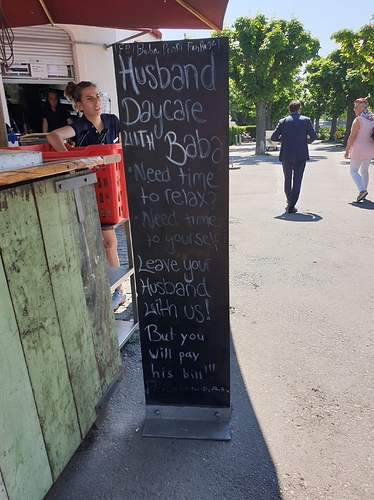 Husband
Daycare
with Baba
• Need time
to relax?
• Need time
to yourself
Leave your
Husband
with us!
But you
will pay
his bill!!!